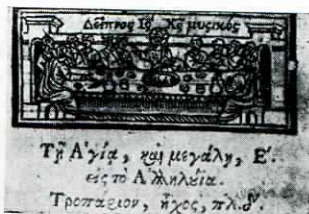 Δεῖπνος Ις Χς μυςικός
Τῇ Ἁγίᾳ, καὶ μεγάλῃ, Ε'.
εἰς τὸ Ἀλληλούϊα.
Τροπάριον, ἦχος, πλ. δ'.